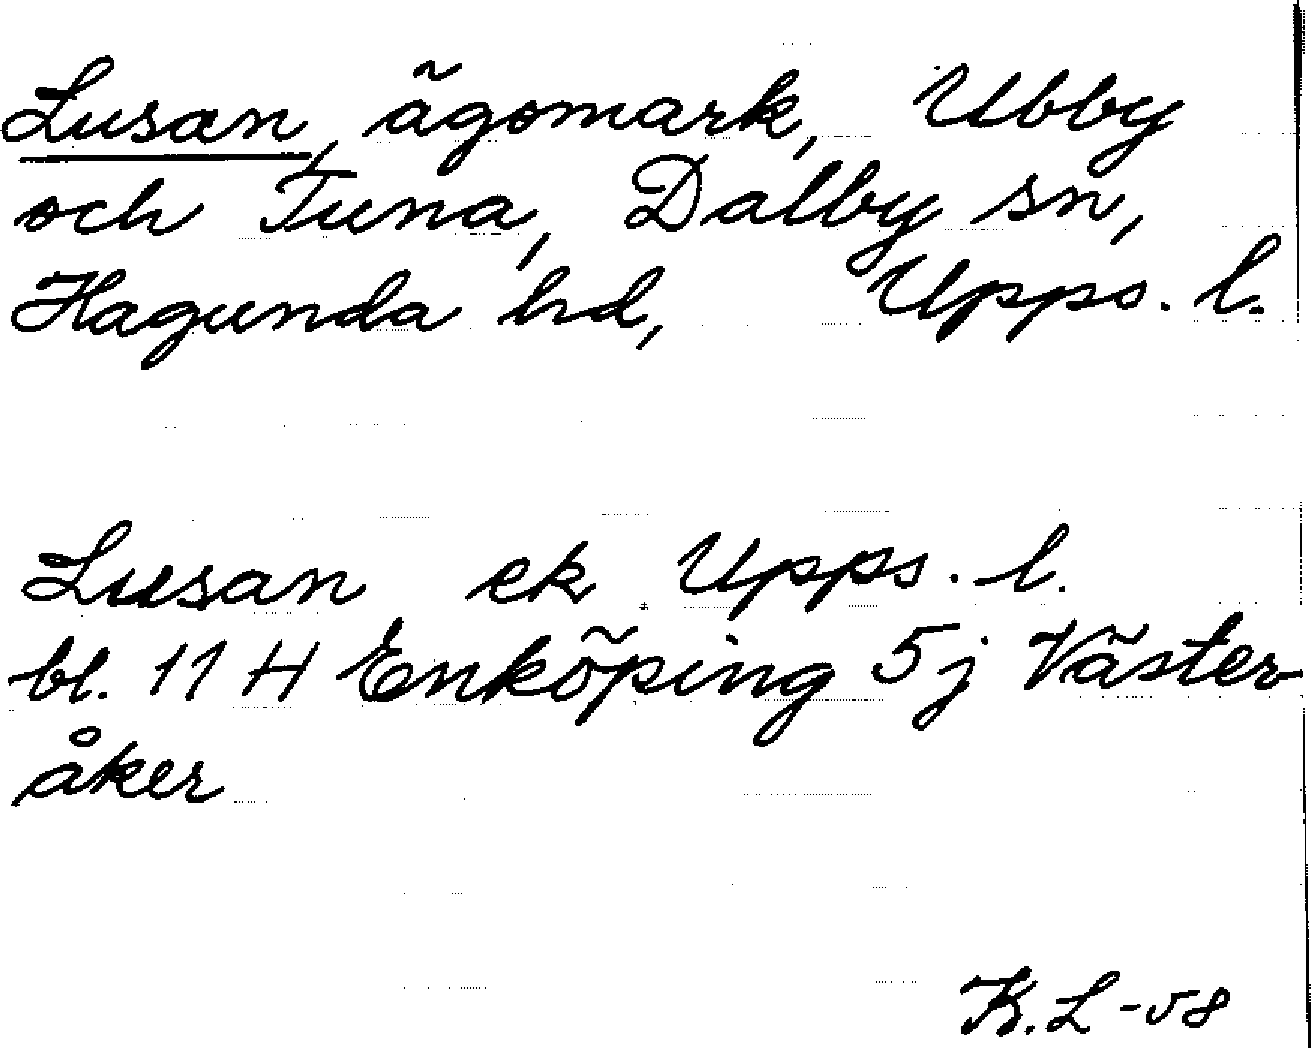 Lusan, ägomark, Ubby
och Tuna, Dalby sn,
Hagunda hd, Upps. l.
Lusan ek Upps. l.
bl. 11 H Enköping 5 j Väster
åker
K. L -58